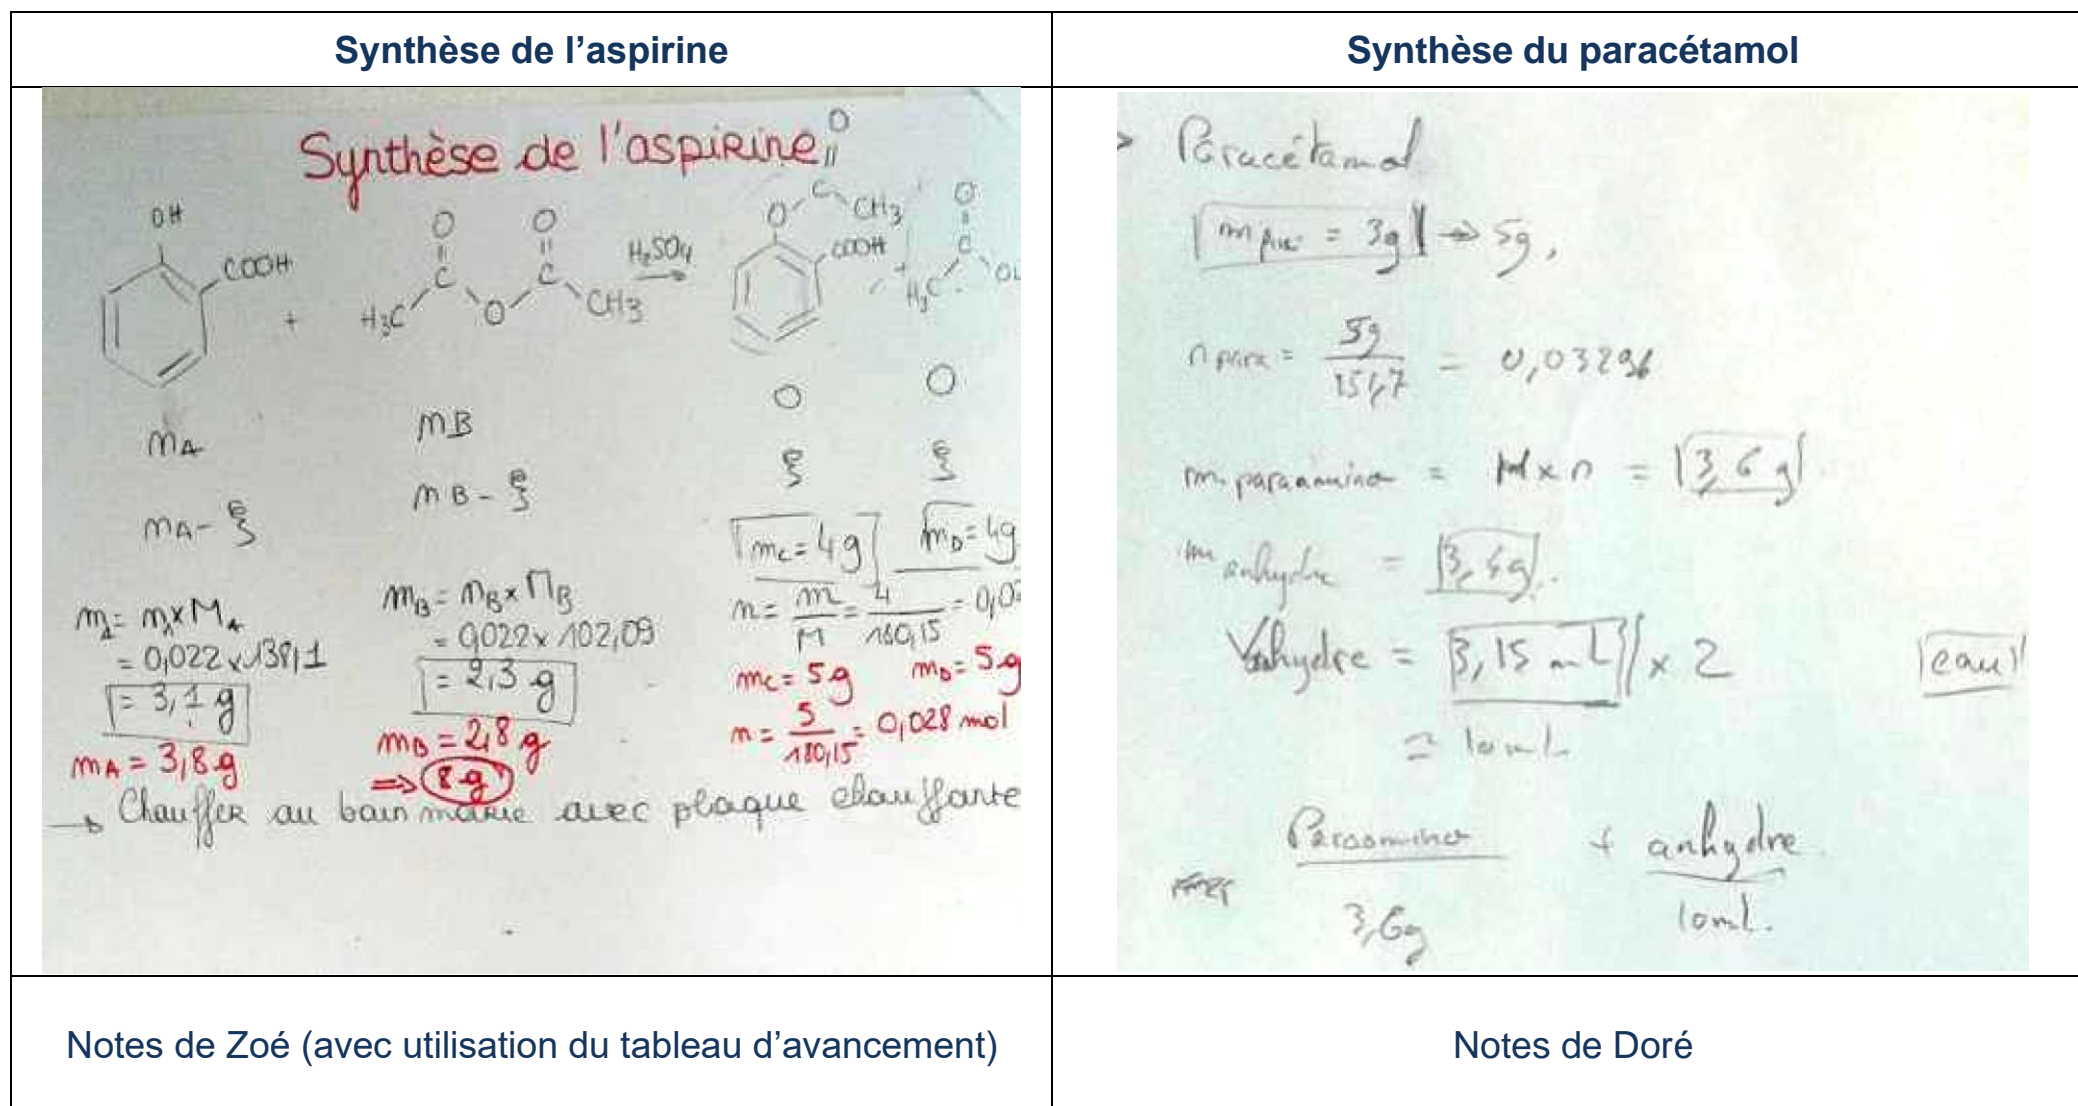 Synthèse de l’aspirine
Synthèse de l'aspirine
OH
COOH
+
O O
H3C C O C CH3
H2SO4
O
O C CH3
COOH
+
O
H3C C
mA mB O O
mA - ξ mB - ξ ξ ξ
mA = nA x MA
= 0,022 x 138,1
= 3,1 g
mA = 3,8 g
mB = nB x MB
= 0,022 x 102,09
= 2,3 g
mB = 2,8 g
⇒ 8 g
mC = 4 g mD = 4g
n = m/M = 4/180,15 = 0,0
mC = 5 g mD = 5 g
n = 5/180,15 = 0,028 mol
→ Chauffer au bain marie avec plaque chauffante
Notes de Zoé (avec utilisation du tableau d’avancement)
Synthèse du paracétamol
> Paracétamol
= 3g → 5g,
n para = 5g/151,7 =
m paraamino = M x n = 3,6 g
m anhydre =
Vanhydre = 3,15 mL x 2
= 10 mL
eau
Paraamino + anhydre
3,6g 10mL.
Notes de Doré